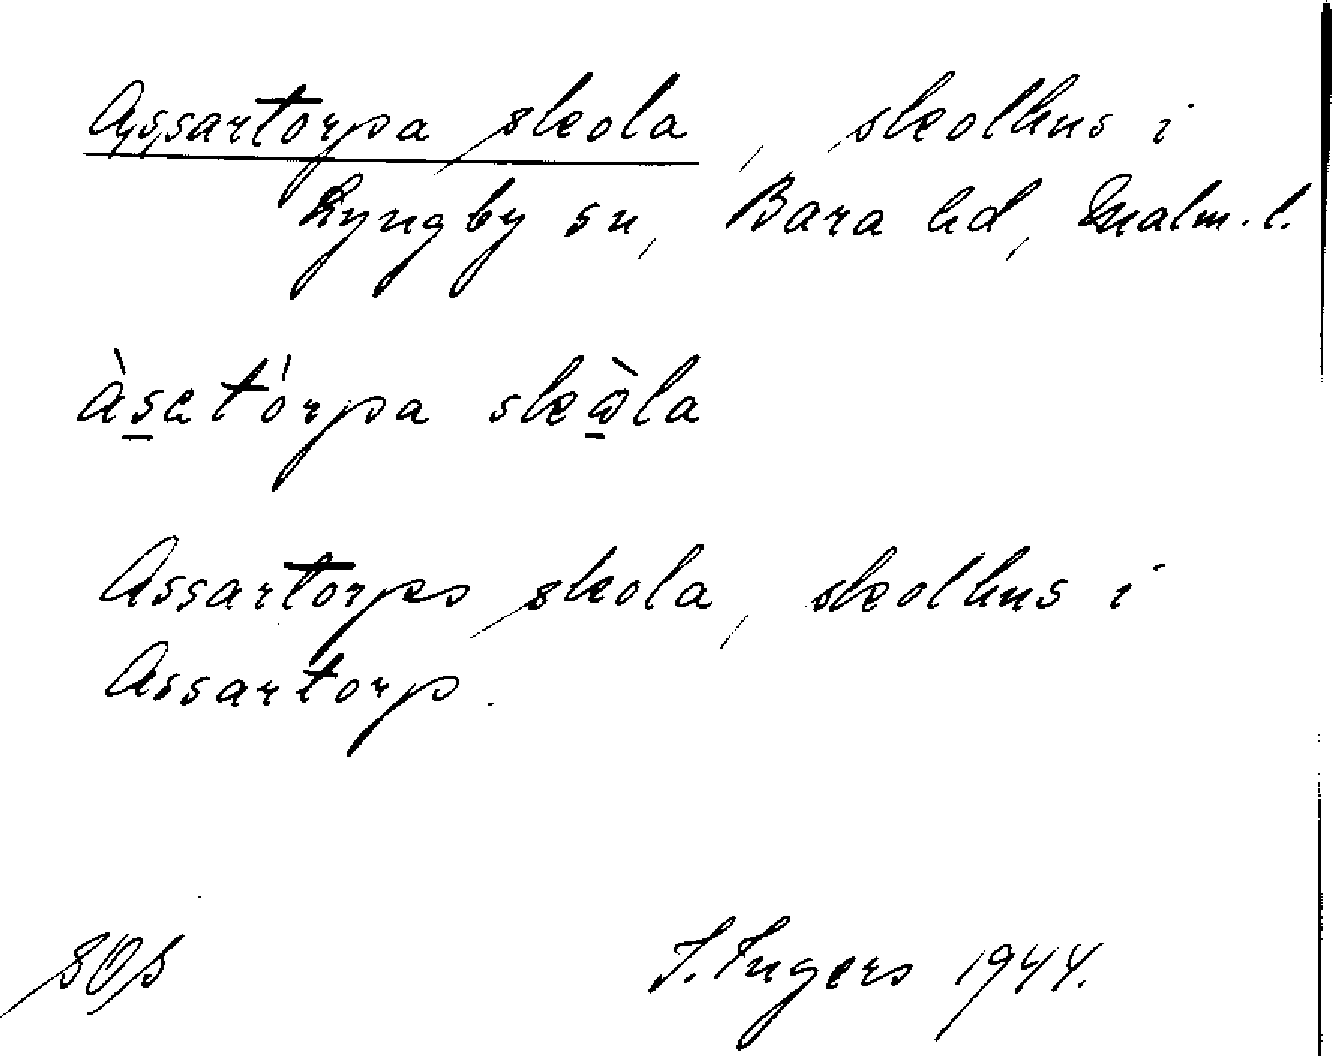 Assartorpa skola, skolhus i
Lyngby sn, Bara hd, Malm. l.
àsatórpa skòla
Assartorps skola, skolhus i
Assartorp.
I. Ingers 1944.